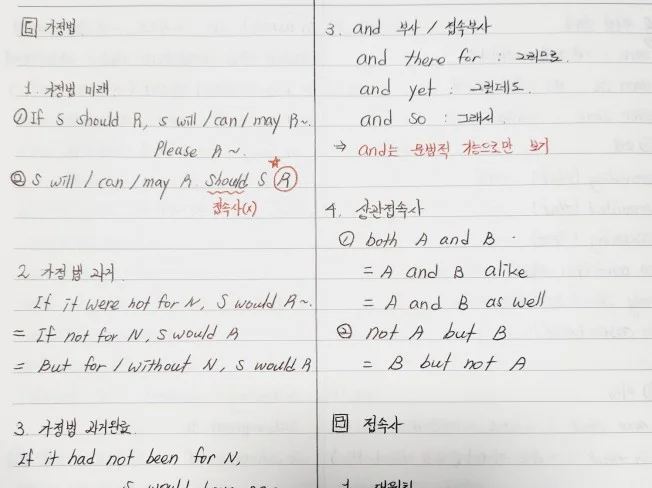 6 가정법
1. 가정법 미래
① If S should R, S will / can / may R~.
Please R~.
② S will / can / may R should S R
접속사(x)
2. 가정법 과거
If it were not for N, S would R~.
= If not for N, S would R
= But for / without N, S would R
3. 가정법 과거완료
If it had not been for N,
3. and 부사 / 접속부사
and there for : 그러므로.
and yet : 그런데도.
and so : 그래서.
→ and는 문법적 기능으로만 보기
4. 상관접속사
① both A and B
= A and B alike
= A and B as well
② not A but B
= B but not A
접속사